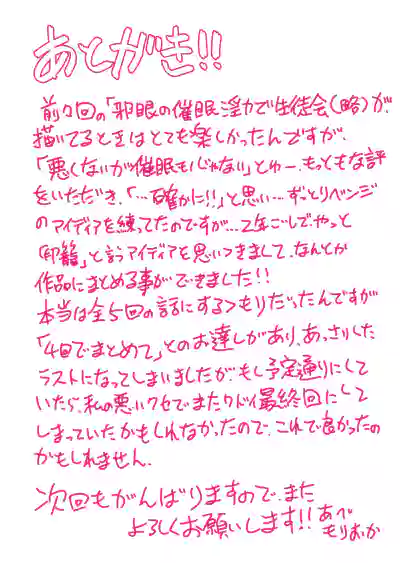 あとがき!!
前々回の「邪眼の催眠淫力で生徒会(略)」が、
描いてるときはとても楽しかったんですが、
「悪くないが催眠モノじゃない」とゆー、もっともな評
をいただき、「…確かに!!」と思い…ずっとリベンジ
のアイディアを練ってたのですが…2年ごしでやっと
「印籠」と言うアイディアを思いつきまして、なんとか
作品にまとめる事ができました!!
本当は全5回の話にするつもりだったんですが
「4回でまとめて」とのお達しがあり、あっさりした
ラストになってしまいましたが、もし予定通りにして
いたら、私の悪いクセでまたクドイ最終回にして
しまっていたかもしれなかったので、これで良かったの
かもしれません。
次回もがんばりますので、また
よろしくお願いします!! あべ
もりおか